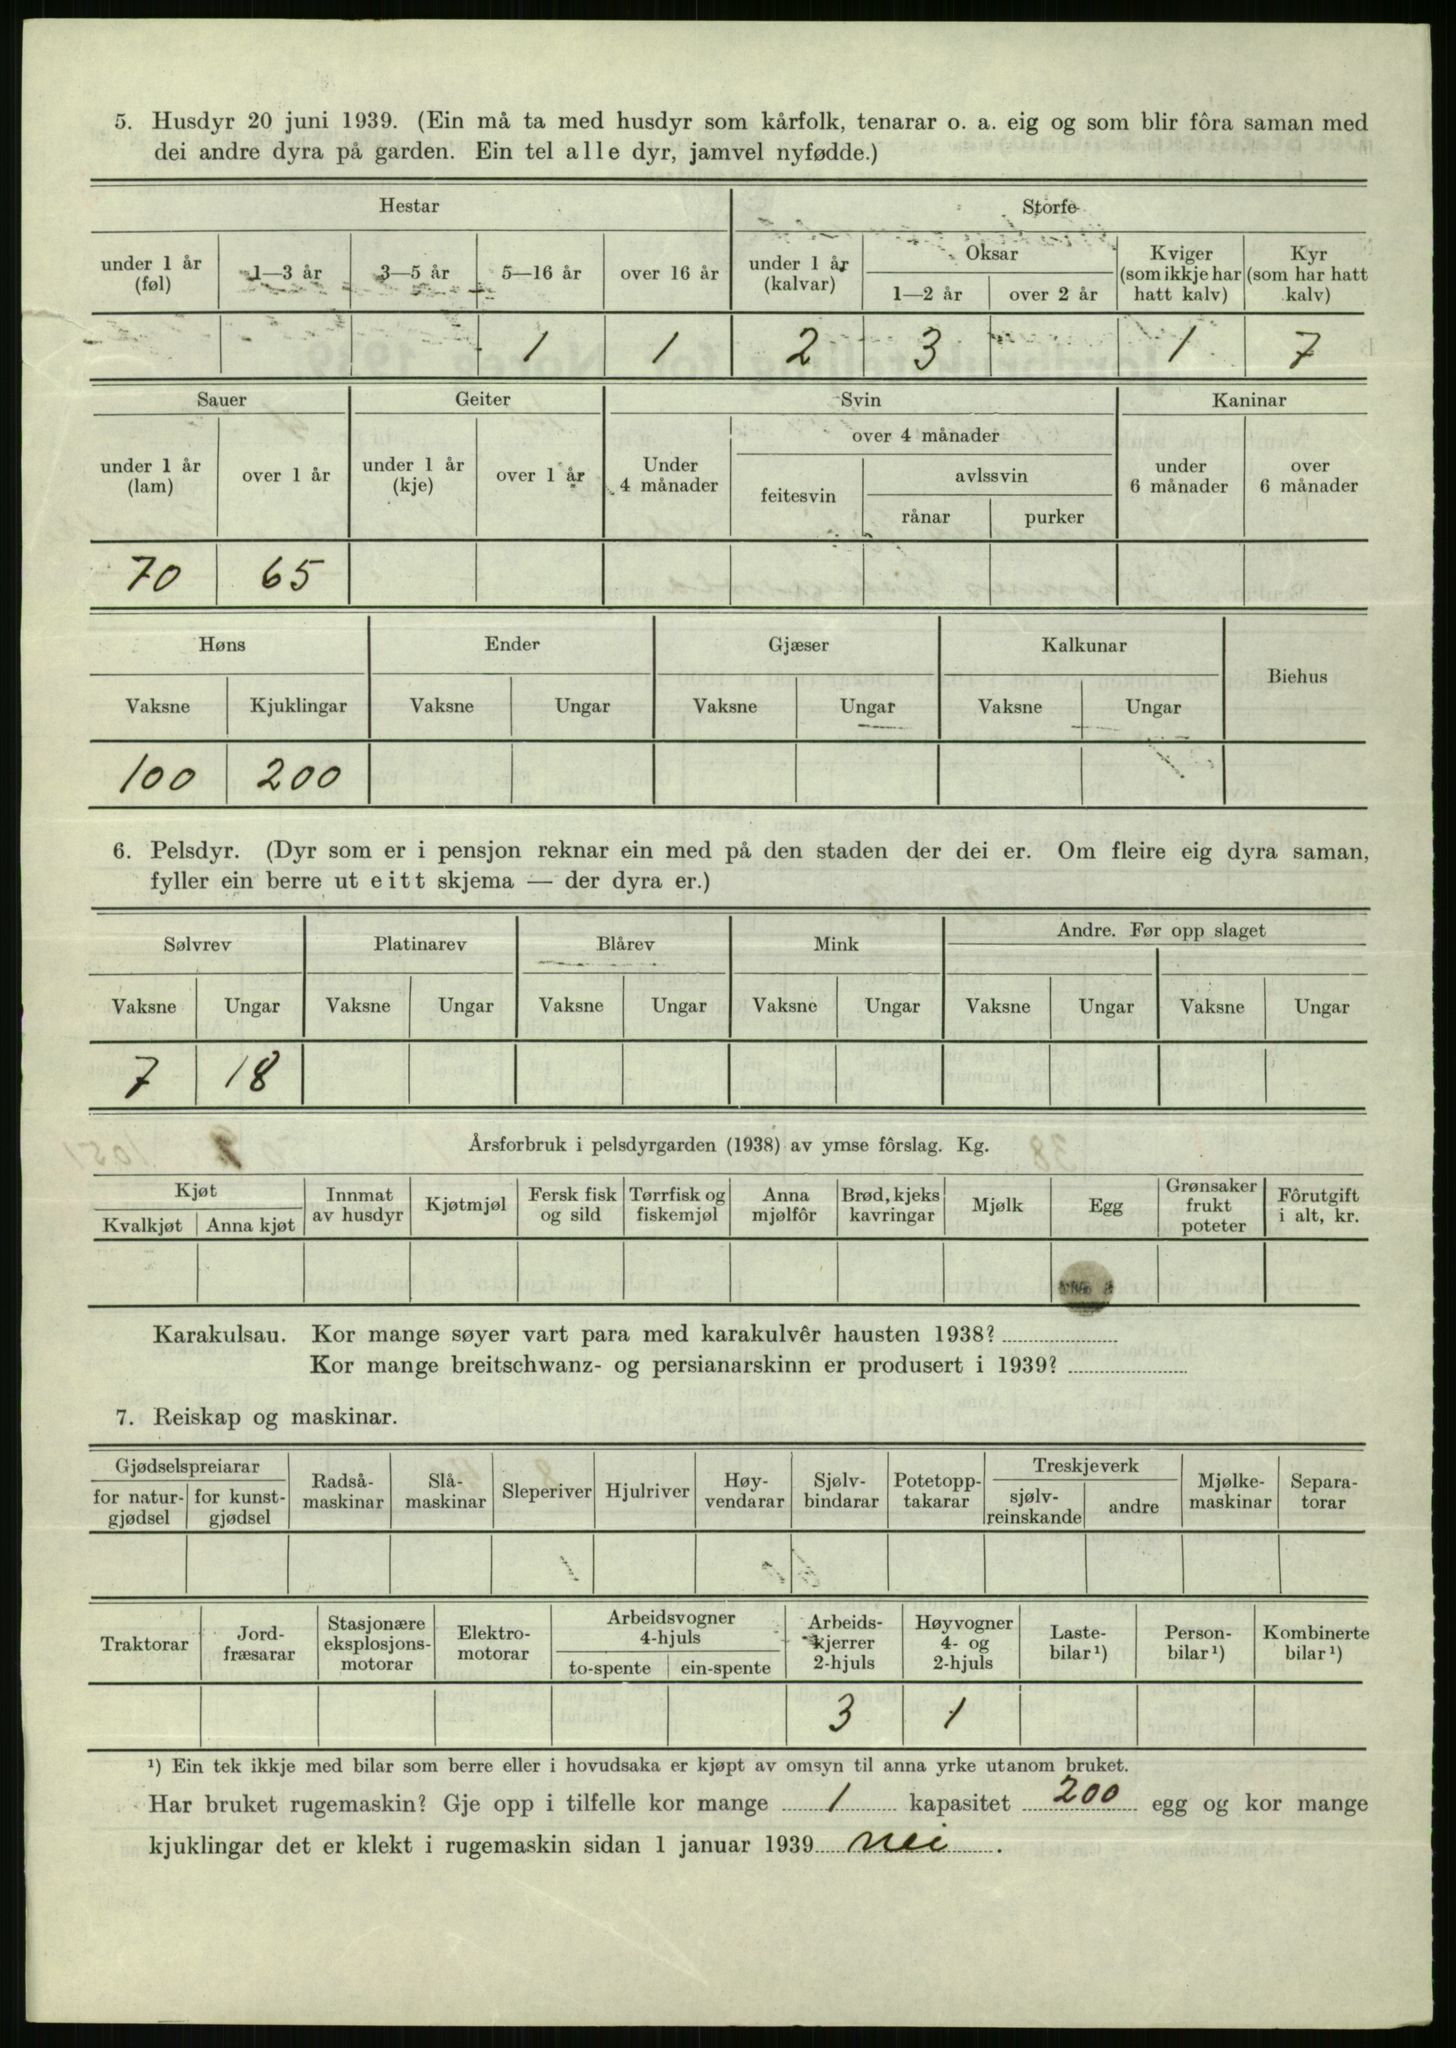 5. Husdyr 20 juni 1939. (Ein må ta med husdyr som kårfolk, tenarar o. a. eig og som blir fôra saman med
dei andre dyra på garden. Ein tel alle dyr, jamvel nyfødde.)
Hestar Storfe
under 1 år (føl) 1—3 år 3—5 år 5—16 år over 16 år under 1 år (kalvar) Oksar 1—2 år over 2 år Kviger (som ikkje har hatt kalv) Kyr (som har hatt kalv)
1 1 2 3 1 7
Sauer Geiter Svin Kaninar
under 1 år (lam) over 1 år under 1 år (kje) over 1 år Under 4 månader over 4 månader feitesvin avlssvin rånar purker under 6 månader over 6 månader
70 65
Høns Ender Gjæser Kalkunar Biehus
Vaksne Kjuklingar Vaksne Ungar Vaksne Ungar Vaksne Ungar
100 200
6. Pelsdyr. (Dyr som er i pensjon reknar ein med på den staden der dei er. Om fleire eig dyra saman,
fyller ein berre ut eitt skjema — der dyra er.)
Sølvrev Platinarev Blårev Mink Andre. Før opp slaget
Vaksne Ungar Vaksne Ungar Vaksne Ungar Vaksne Ungar Vaksne Ungar Vaksne Ungar
7 18
Årsforbruk i pelsdyrgarden (1938) av ymse fôrslag. Kg.
Kjøt Kvalkjøt Anna kjøt Innmat av husdyr Kjøtmjøl Fersk fisk og sild Tørrfisk og fiskemjøl Anna mjølfôr Brød, kjeks kavringar Mjølk Egg Grønsaker frukt poteter Fôrutgift i alt, kr.
Karakulsau. Kor mange søyer vart para med karakulvêr hausten 1938?
Kor mange breitschwanz- og persianarskinn er produsert i 1939?
7. Reiskap og maskinar.
Gjødselspreiarar for natur-gjødsel for kunst-gjødsel Radså-maskinar Slå-maskinar Sleperiver Hjulriver Høy-vendarar Sjølv-bindarar Potetopp-takarar Treskjeverk sjølv-reinskande andre Mjølke-maskinar Separa-torar
Traktorar Jord-fræsarar Stasjonære eksplosjons-motorar Elektro-motorar Arbeidsvogner 4-hjuls to-spente ein-spente Arbeids-kjerrer 2-hjuls Høyvogner 4- og 2-hjuls Laste-bilar¹) Person-bilar¹) Kombinerte bilar¹)
3 1
¹) Ein tek ikkje med bilar som berre eller i hovudsaka er kjøpt av omsyn til anna yrke utanom bruket.
Har bruket rugemaskin? Gje opp i tilfelle kor mange 1 kapasitet 200 egg og kor mange
kjuklingar det er klekt i rugemaskin sidan 1 januar 1939 nei.